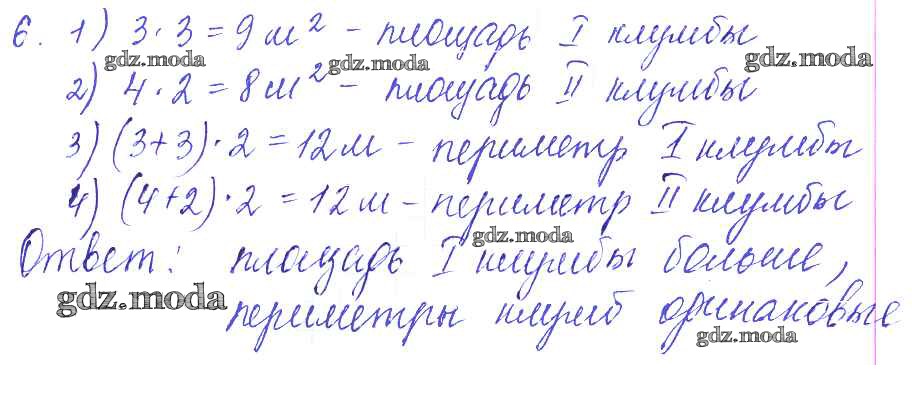 6. 1) 3·3=9м² – площадь I клумбы
gdz.moda gdz.moda gdz.moda
2) 4·2=8м² – площадь II клумбы
3) (3+3)·2=12м – периметр I клумбы
4) (4+2)·2=12м – периметр II клумбы
gdz.moda
Ответ: площадь I клумбы больше,
gdz.moda
периметры клумб одинаковые
gdz.moda